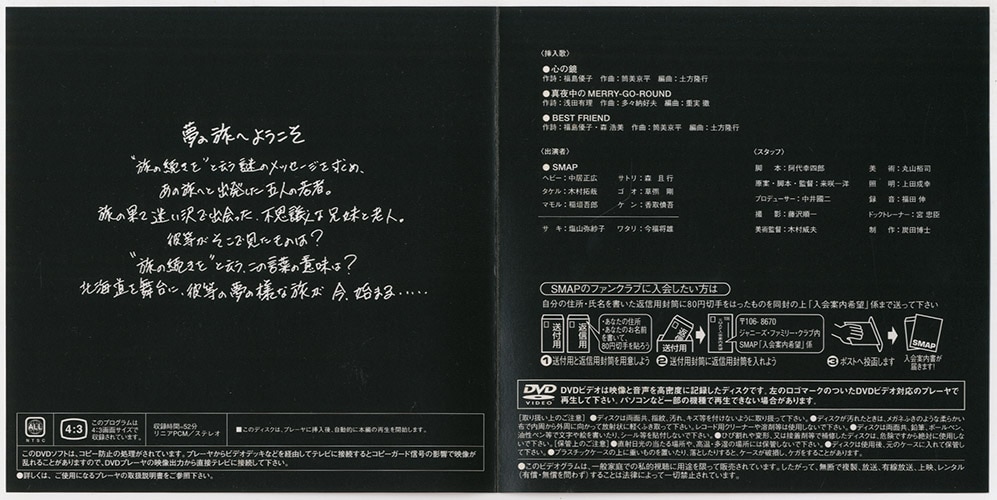 夢の旅へようこそ
"旅の続きを"と云う謎のメッセージを求め、
あの旅へと出発した五人の若者。
旅の果て迷い沢で出会った、不思議な兄妹と老人。
彼等がそこで見たものは?
"旅の続きを"と云う、この言葉の意味は?
北海道を舞台に、彼等の夢の様な旅が 今、始まる・・・・・
ALL
NTSC
4:3
このプログラムは
4:3画面サイズで
収録されています。
収録時間・52分
リニアPCM/ステレオ
■このディスクは、プレーヤに挿入後、自動的に本編の再生を開始します。
このDVDソフトは、コピー防止の処理がされています。プレーヤからビデオデッキなどを経由してテレビに接続するとコピーガード信号の影響で映像が
乱れることがありますので、DVDプレーヤの映像出力から直接テレビに接続して下さい。
●詳しくは、ご使用になるプレーヤの取扱説明書をご参照下さい。
〈挿入歌〉
●心の鏡
作詩:福島優子 作曲:筒美京平 編曲:土方隆行
●真夜中のMERRY-GO-ROUND
作詩:浅田有理 作曲:多々納好夫 編曲:重実 徹
●BEST FRIEND
作詩:福島優子・森 浩美 作曲:筒美京平 編曲:土方隆行
〈出演者〉
●SMAP
ヘビー:中居正広 サトリ:森 且行
タケル:木村拓哉 ゴオ:草彅 剛
マモル:稲垣吾郎 ケン:香取慎吾
サキ:塩山弥紗子 ワタリ:今福将雄
〈スタッフ〉
脚 本:阿代幸四郎 美 術:丸山裕司
原案・脚本・監督:来咲一洋 照 明:上田成幸
プロデューサー:中井國二 録 音:福田 伸
撮 影:藤沢順一 ドックトレーナー:宮 忠臣
美術監督:木村威夫 制 作:炭田博士
SMAPのファンクラブに入会したい方は
自分の住所・氏名を書いた返信用封筒に80円切手をはったものを同封の上「入会案内希望」係まで送って下さい
送付用
返信用
・あなたの住所
・あなたのお名前
を書いて、
80円切手を貼ろう
送付用
〒106-8670
ジャニーズ・ファミリー・クラブ内
SMAP「入会案内希望」係
SMAP
❶送付用と返信用封筒を用意しよう ❷送付用封筒に返信用封筒を入れよう ❸ポストへ投函します
入会案内書が
届きます!
DVD
VIDEO
DVDビデオは映像と音声を高密度に記録したディスクです。左のロゴマークのついたDVDビデオ対応のプレーヤで
再生して下さい。パソコンなど一部の機種で再生できない場合があります。
[取り扱い上のご注意] ●ディスクは両面共、指紋、汚れ、キズ等を付けないように取り扱って下さい。●ディスクが汚れたときは、メガネふきのような柔らかい
布で内周から外周に向かって放射状に軽くふき取って下さい。レコード用クリーナーや溶剤等は使用しないで下さい。●ディスクは両面共、鉛筆、ボールペン、
油性ペン等で文字や絵を書いたり、シール等を貼付しないで下さい。●ひび割れや変形、又は接着剤等で補修したディスクは、危険ですから絶対に使用しな
いで下さい。[保管上のご注意] ●直射日光の当たる場所や、高温・多湿の場所には保管しないで下さい。●ディスクは使用後、元のケースに入れて保管し
て下さい。●プラスチックケースの上に重いものを置いたり、落としたりすると、ケースが破損し、ケガをすることがあります。
●このビデオグラムは、一般家庭での私的視聴に用途を限って販売されています。したがって、無断で複製、放送、有線放送、上映、レンタル
(有償・無償を問わず)することは法律によって一切禁止されています。